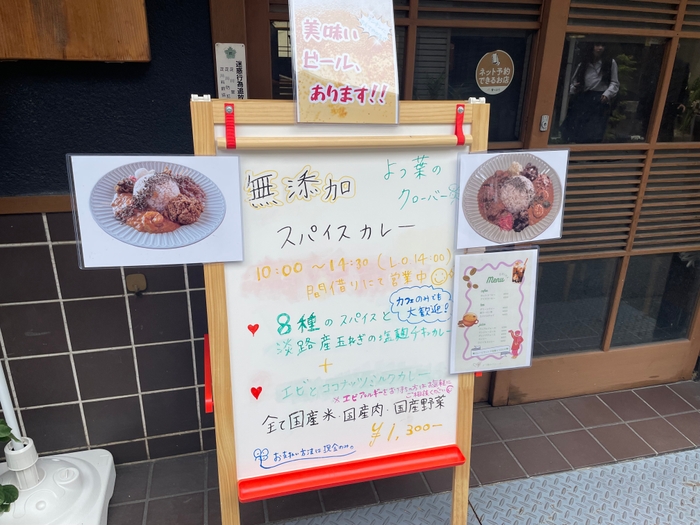 美味い
ビール、
あります!!
ネット予約
できるお店
迷惑行為追放
無添加
よつ葉の
クローバー
スパイスカレー
10:00 〜14:30 (L.O 14:00)
間借りにて営業中
カフェのみでも
大歓迎!
♥ 8種のスパイスと
淡路産玉ねぎの塩麹チキンカレー
+
♥ エビとココナッツミルクカレー
※エビアレルギーをお持ちの方は
全て国産米・国産肉・国産野菜
¥1,300ー
お支払い方法は現金のみ。
Menu